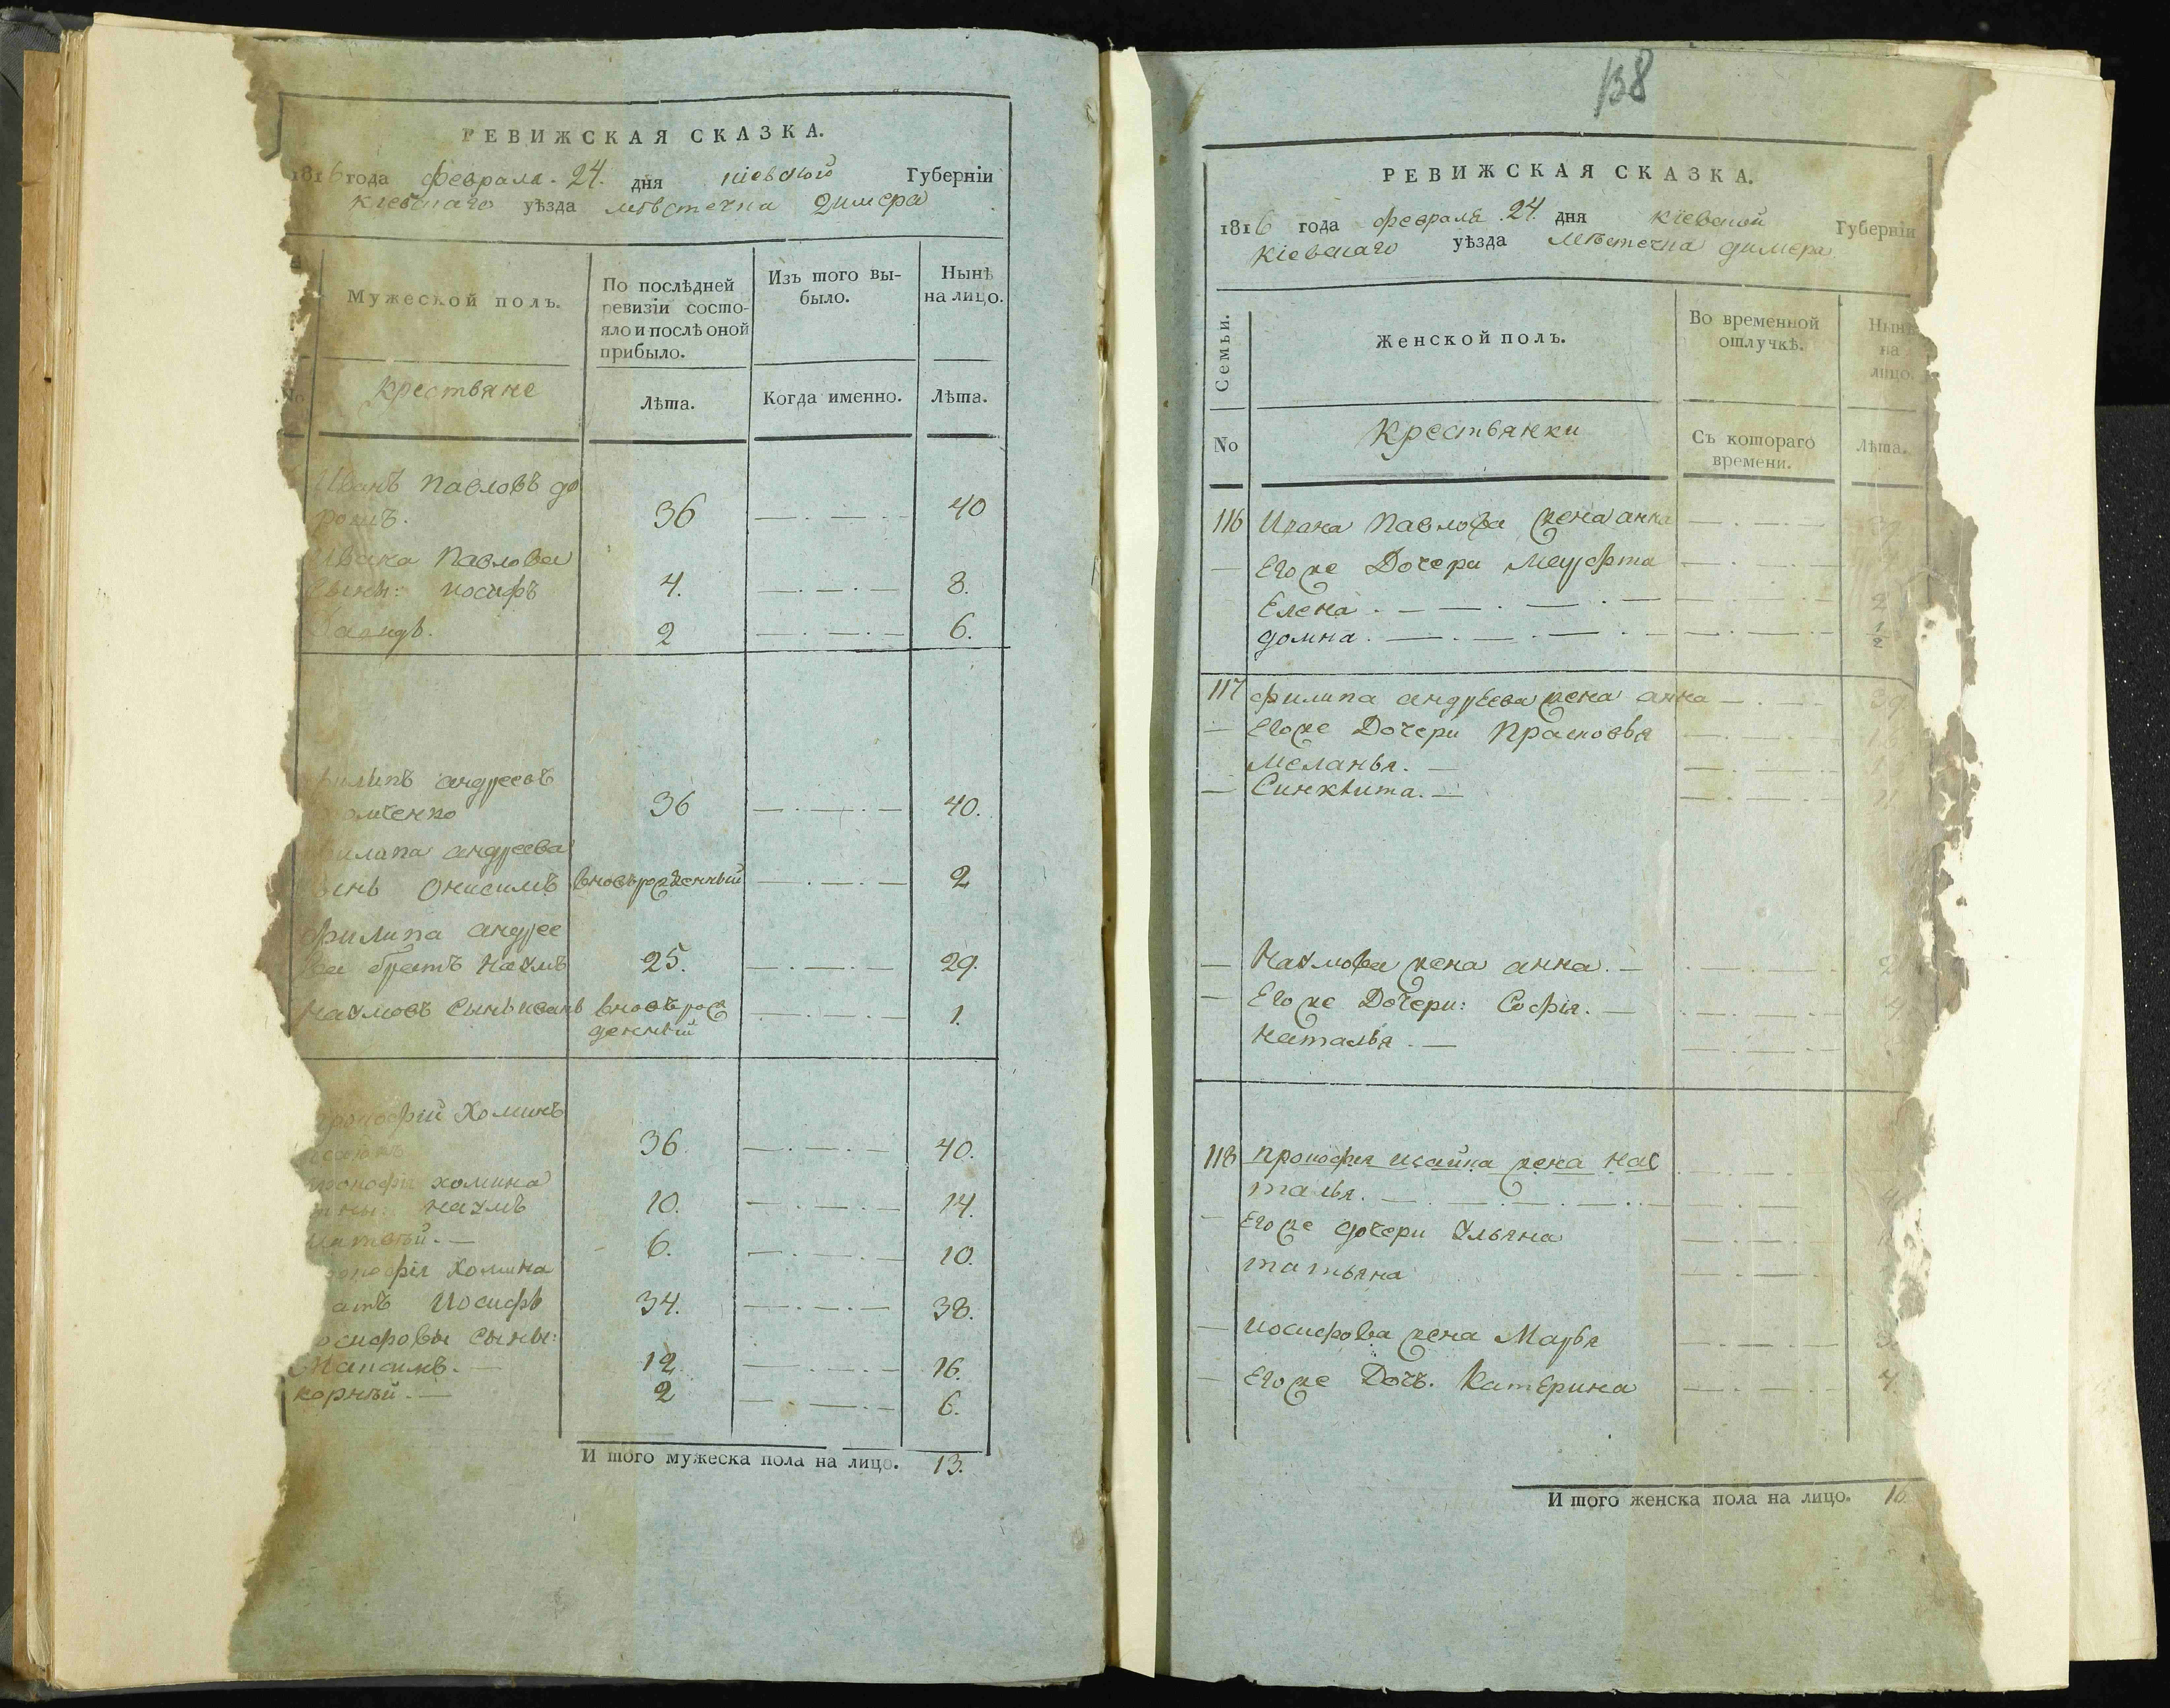 РЕВИЖСКАЯ СКАЗКА.
1816 года февраля 24. дня кіевской Губерніи
кіевскаго уѣзда мѣстечка димера
Мужеской полъ.
По послѣдней
ревизіи состо-
яло и послѣ оной
прибыло.
Изъ того вы-
было.
Нынѣ
на лицо.
No
крестьяне
Лѣта.
Когда именно.
Лѣта.
Иванъ павловъ до
рошъ. 36 — . — . — 40
Ивана павлова
сыны: иосифъ 4. — . — . — 8.
2 — . — . — 6.
филипъ андреевъ
36 — . — . — 40.
филипа андреева
сынъ онисимъ вновьрожденный — . — . — 2
филипа андрее
ва братъ наумъ 25. — . — . — 29.
наумовъ сынъ иванъ вновьрож
денный — . — . — 1.
прокофій хоминъ
36. — . — . — 40.
прокофія хомина
сыны: наумъ 10. — . — . — 14.
матвѣй. — 6. — . — . — 10.
прокофія хомина
братъ иосифъ 34. — . — . — 38.
иосифовы сыны:
12. — . — . — 16.
корнѣй. — 2 — . — . — 6.
И того мужеска пола на лицо. 13.
138
РЕВИЖСКАЯ СКАЗКА.
1816 года февраля 24. дня кіевской Губерніи
кіевскаго уѣзда мѣстечка димера
Семьи.
Женской полъ.
Во временной
отлучкѣ.
Нынѣ
на
лицо.
No
крестьянки
Съ котораго
времени.
Лѣта.
116 Ивана павлова жена анна — . — . —
— Его же Дочери — . — . —
Елена . — — . — . — — . — . — 2
домна . — . — . — . — — . — . — 1/2
117 филипа андреева жена анна — . — . —
— Его же Дочери прасковья — . — . —
меланья. — — . — . —
— Синклита. — — . — . —
— наумова жена анна. — — . — . —
— Его же Дочери: Софія. — — . — . — 4
наталья . — — . — . —
118 прокофія исайка жена нас
талья. — . — . — . — — . — . —
— Его же дочери ульяна — . — . —
татьяна — . — . —
— иосифова жена Марья — . — . —
— Его же Дочь. катерина — . — . — 4.
И того женска пола на лицо. 16